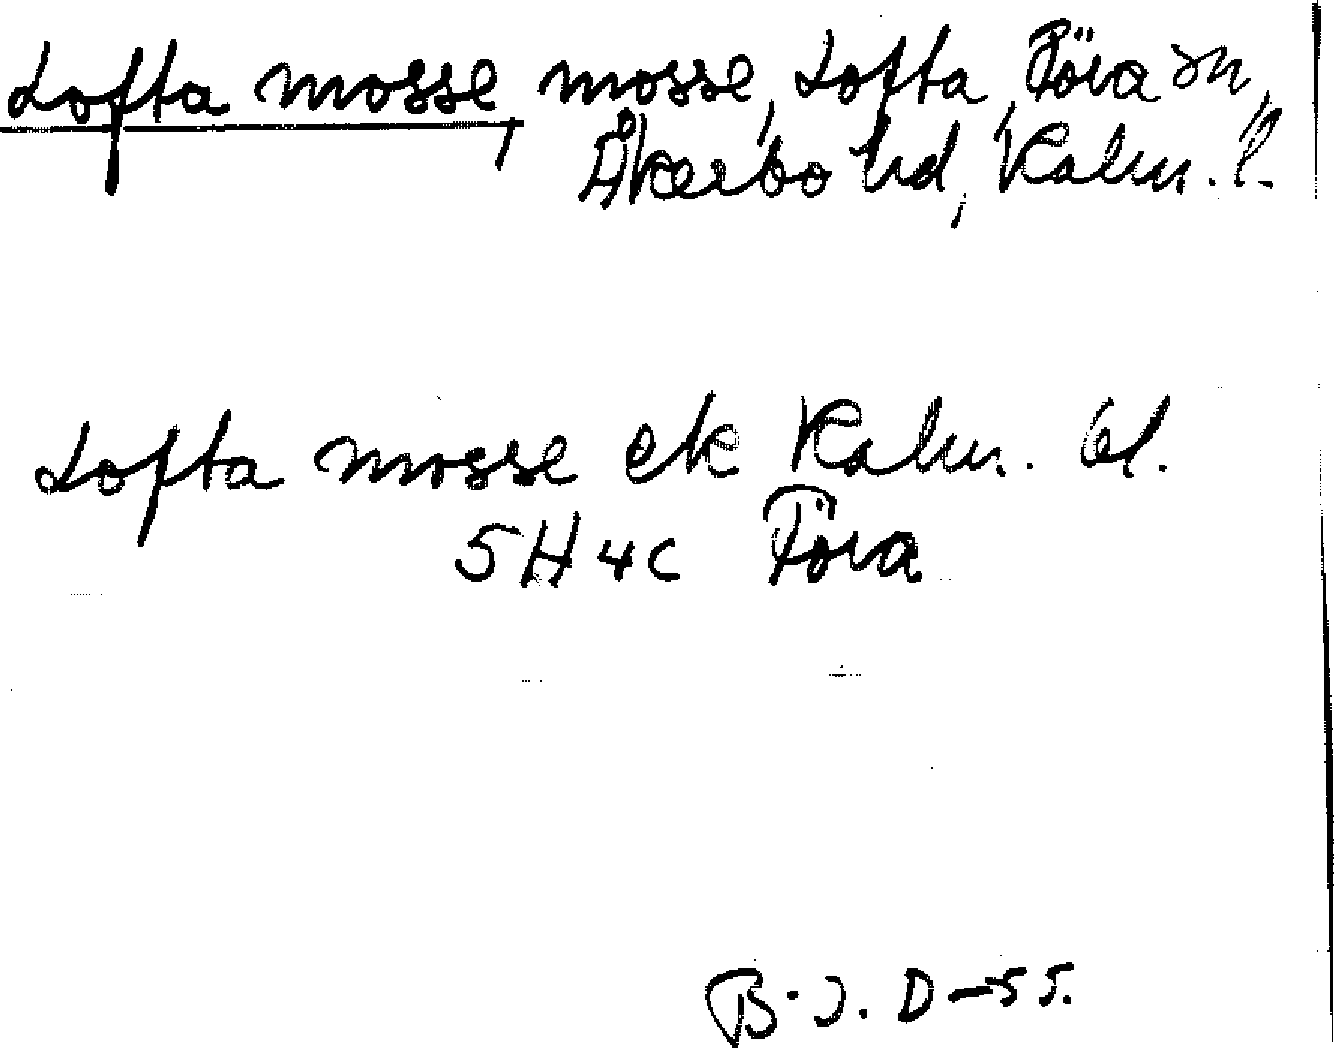 Lofta mosse, mosse, Lofta, Föra sn,
Åkerbo hd, Kalm. l.
Lofta mosse ek Kalm. bl.
5H 4c Föra
B.J. D-55.